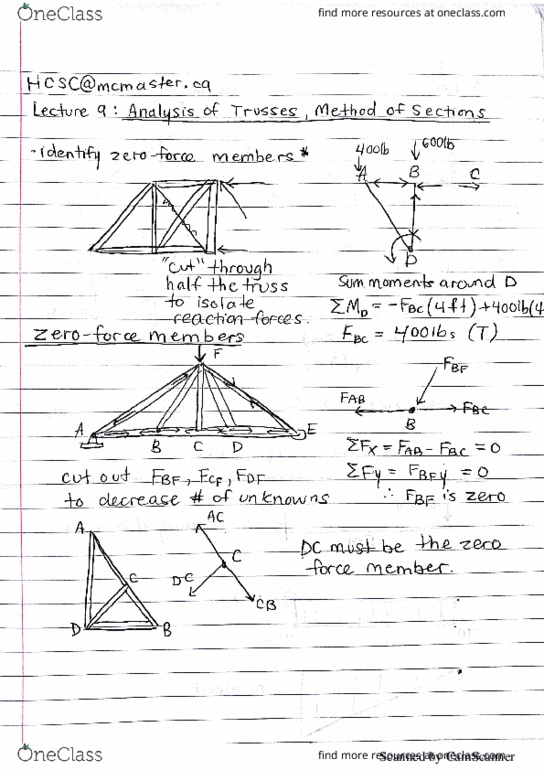 OneClass
find more resources at oneclass.com
HCSC@mcmaster.ca
Lecture 9: Analysis of Trusses, Method of Sections
- identify zero-force members *
400lb
600lb
A
B
C
D
"cut" through
half the truss
to isolate
reaction forces.
Sum moments around D
ΣM_D = -F_BC(4ft)+400lb(4
F_BC = 400lbs (T)
Zero-force members
F
A
B
C
D
E
F_BF
F_AB
F_BC
B
ΣFx = F_AB - F_BC = 0
ΣFy = F_BFy = 0
∴ F_BF is zero
cut out F_BF, F_CF, F_DF
to decrease # of unknowns
A
C
D
B
AC
C
DC
CB
DC must be the zero
force member.
OneClass
find more resources at oneclass.com
Scanned by CamScanner